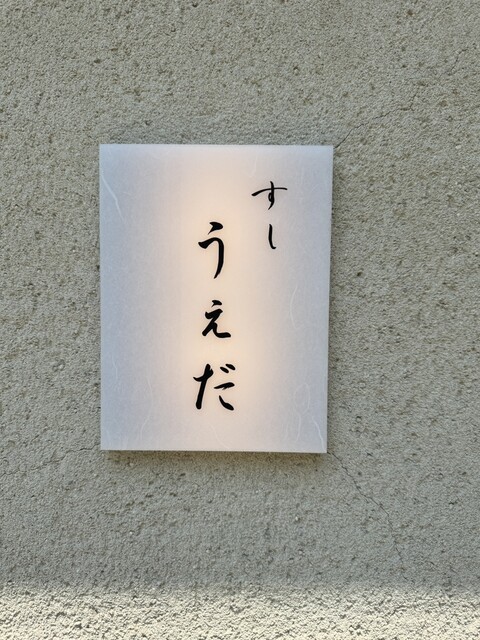 すし
うえだ